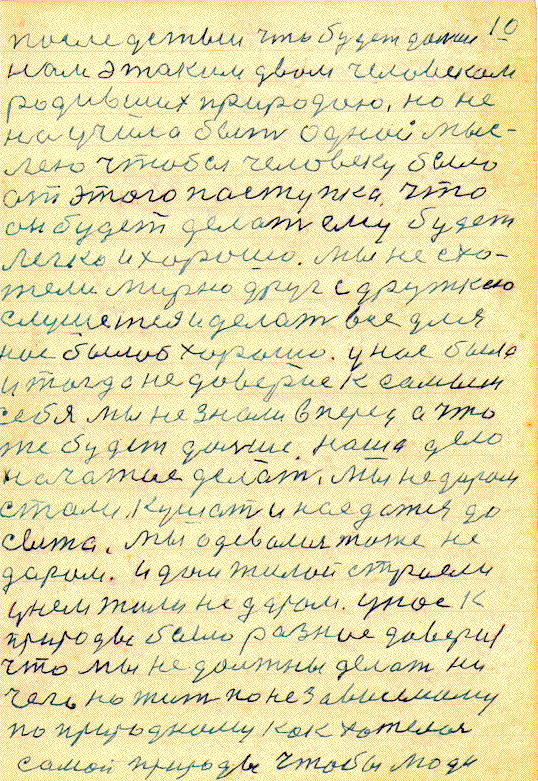 10
последствии что будет дальше
нам этаким двом человекам
родивших природою, но не
научила быт одной мыс-
лею чтобы человеку было
от этого паступка, что
он будет делат ему будет
легко и хорошо. мы не схо-
тели мирно друг с дружкою
слушется и делат все для
нас былоб хорошо. у нас была
и тогда не доверие к самым
себя мы не знали вперед а что
же будет дальше. наша дело
начатые делат. мы не даром
стали. кушат и наедатся до
сыта. мы одевалися тоже не
даром. и дом жилой строели
у нем жили не даром. у нас к
природы было разные доверия
что мы не должны делат ни
чего но жит по независемому
по природному как хотелося
самой природы чтобы люди